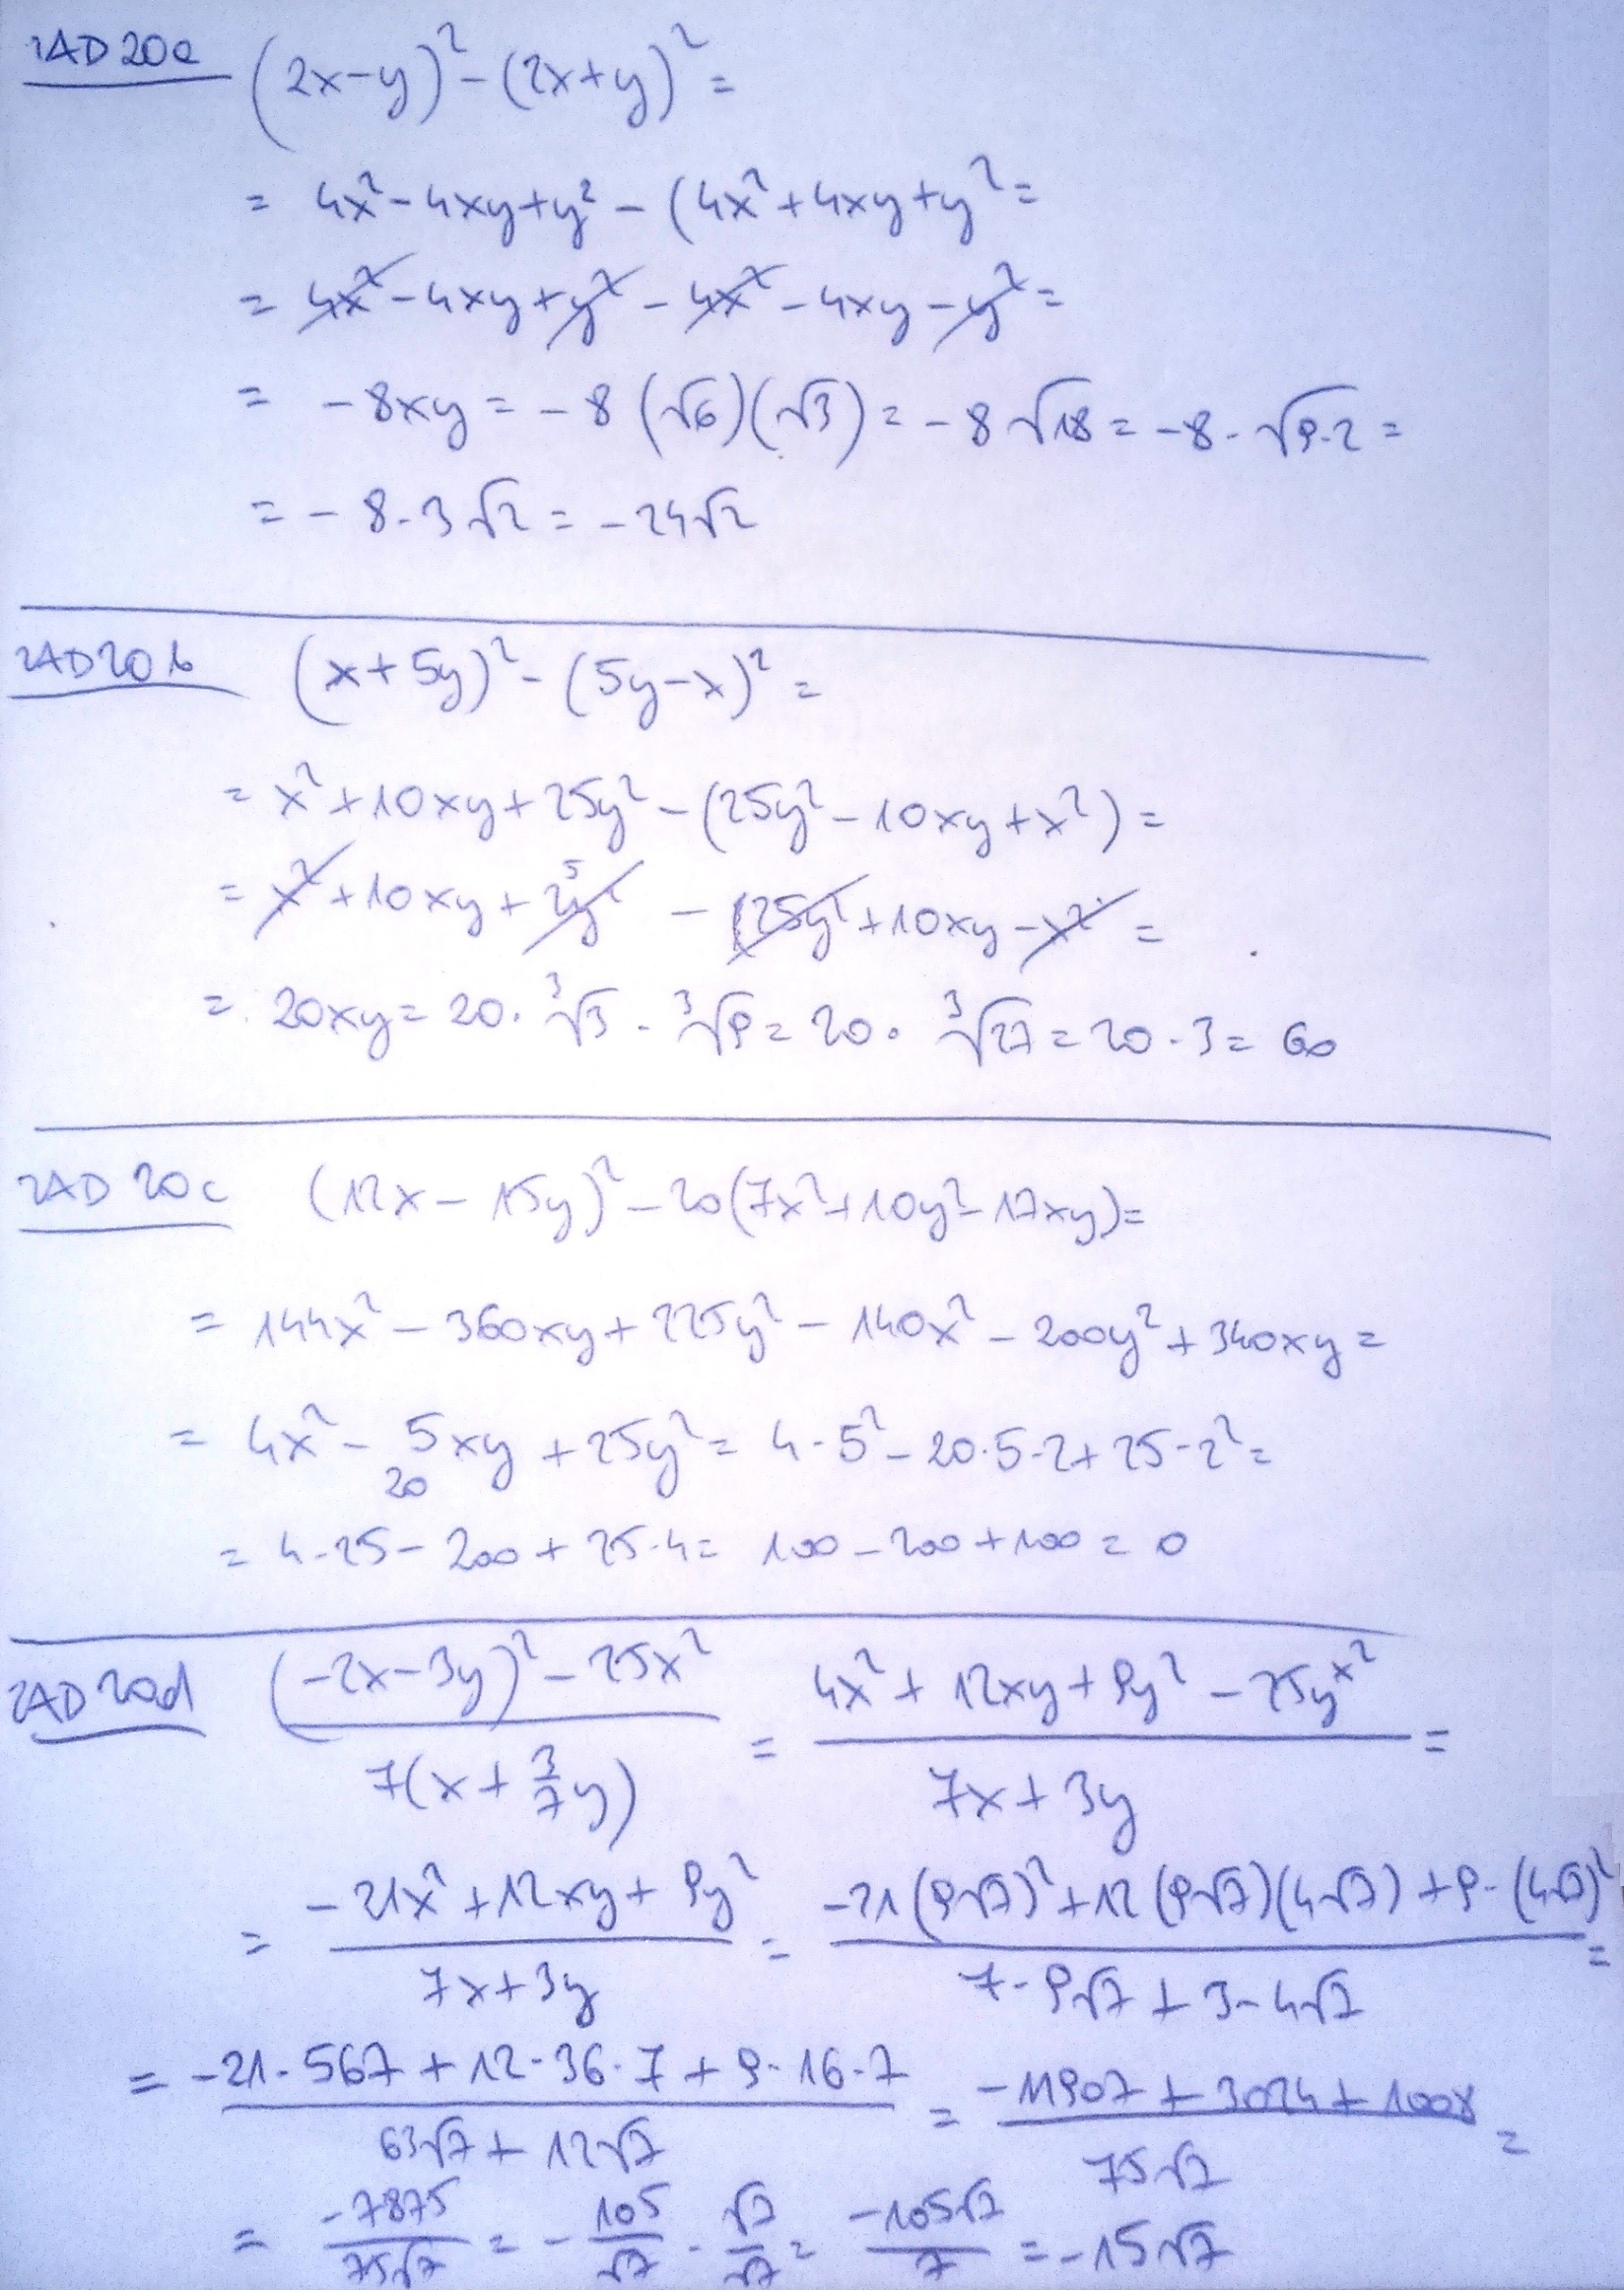 ZAD 20a (2x-y)² - (2x+y)² =
= 4x² - 4xy + y² - (4x² + 4xy + y² =
= 4x² - 4xy + y² - 4x² - 4xy - y² =
= -8xy = -8(√6)(√3) = -8√18 = -8·√9·2 =
= -8·3√2 = -24√2
ZAD 20b (x+5y)² - (5y-x)² =
= x² + 10xy + 25y² - (25y² - 10xy + x²) =
= x² + 10xy + 25y² - (25y² + 10xy - x² =
= 20xy = 20·∛3·∛9 = 20·∛27 = 20·3 = 60
ZAD 20c (12x - 15y)² - 20(7x² + 10y² - 17xy) =
= 144x² - 360xy + 225y² - 140x² - 200y² + 340xy =
= 4x² - 5xy + 25y² = 4·5² - 20·5·2 + 25·2² =
20
= 4·25 - 200 + 25·4 = 100 - 200 + 100 = 0
ZAD 20d (-2x-3y)² - 25x² / 7(x + 3/7 y) = 4x² + 12xy + 9y² - 25x² / 7x + 3y =
= -21x² + 12xy + 9y² / 7x + 3y = -21(9√7)² + 12(9√7)(4√7) + 9·(4√7)² / 7·9√7 + 3·4√7 =
= -21·567 + 12·36·7 + 9·16·7 / 63√7 + 12√7 = -11907 + 3024 + 1008 / 75√7 =
= -7875 / 75√7 = - 105/√7 · √7/√7 = -105√7 / 7 = -15√7